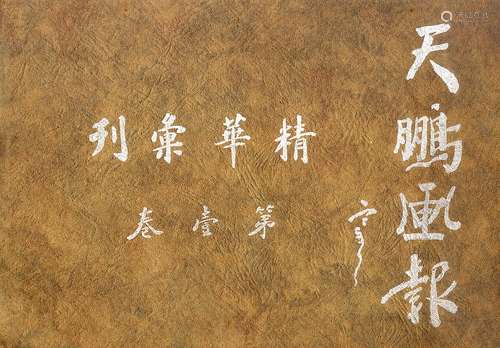 天鵬画報
精華彙刊
第壹卷